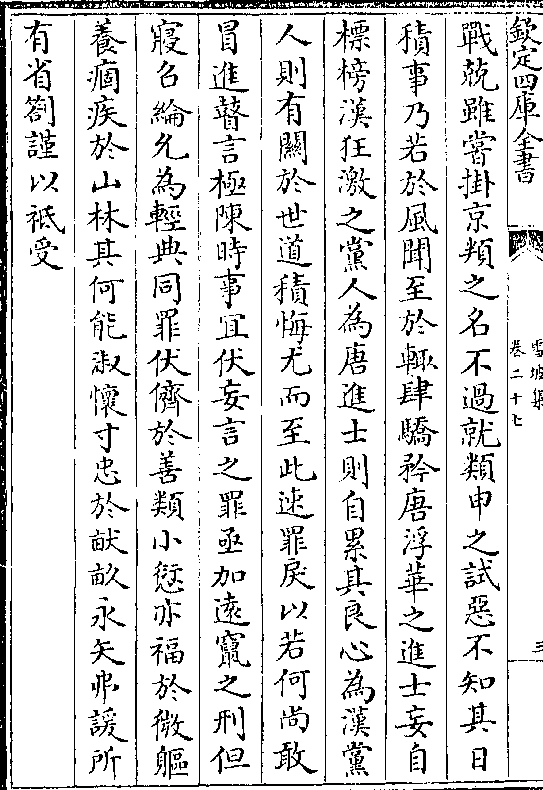 欽定四庫全書
雪坡集
卷二十七
三
戰兢雖嘗掛京類之名不過就類申之試惡不知其日
積事乃若於風聞至於輒肆驕矜唐浮華之進士妄自
標榜漢狂激之黨人為唐進士則自累其良心為漢黨
人則有關於世道積悔尤而至此速罪戾以若何尚敢
冒進瞽言極陳時事宜伏妄言之罪亟加遠竄之刑但
寢召綸允為輕典同罪伏儕於善類小愆亦福於微軀
養痼疾於山林其何能淑懷寸忠於畎畝永矢弗諼所
有省劄謹以祗受